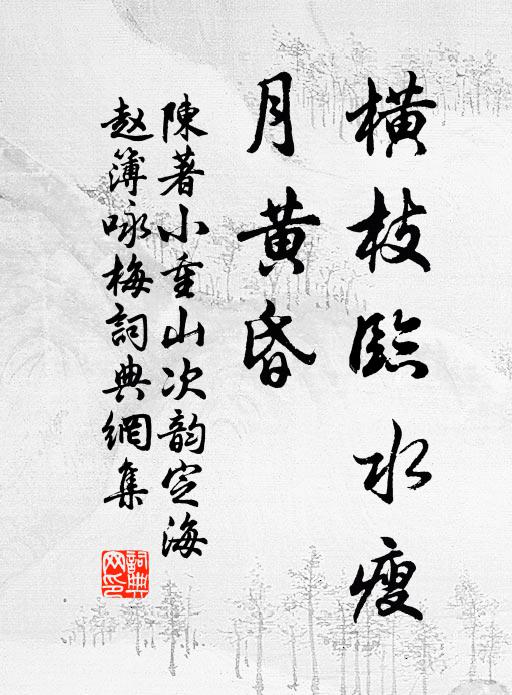 橫枝臨水瘦
月黃昏
陳著小重山次韵定海
赵簿咏梅詞典網集
詞典网印